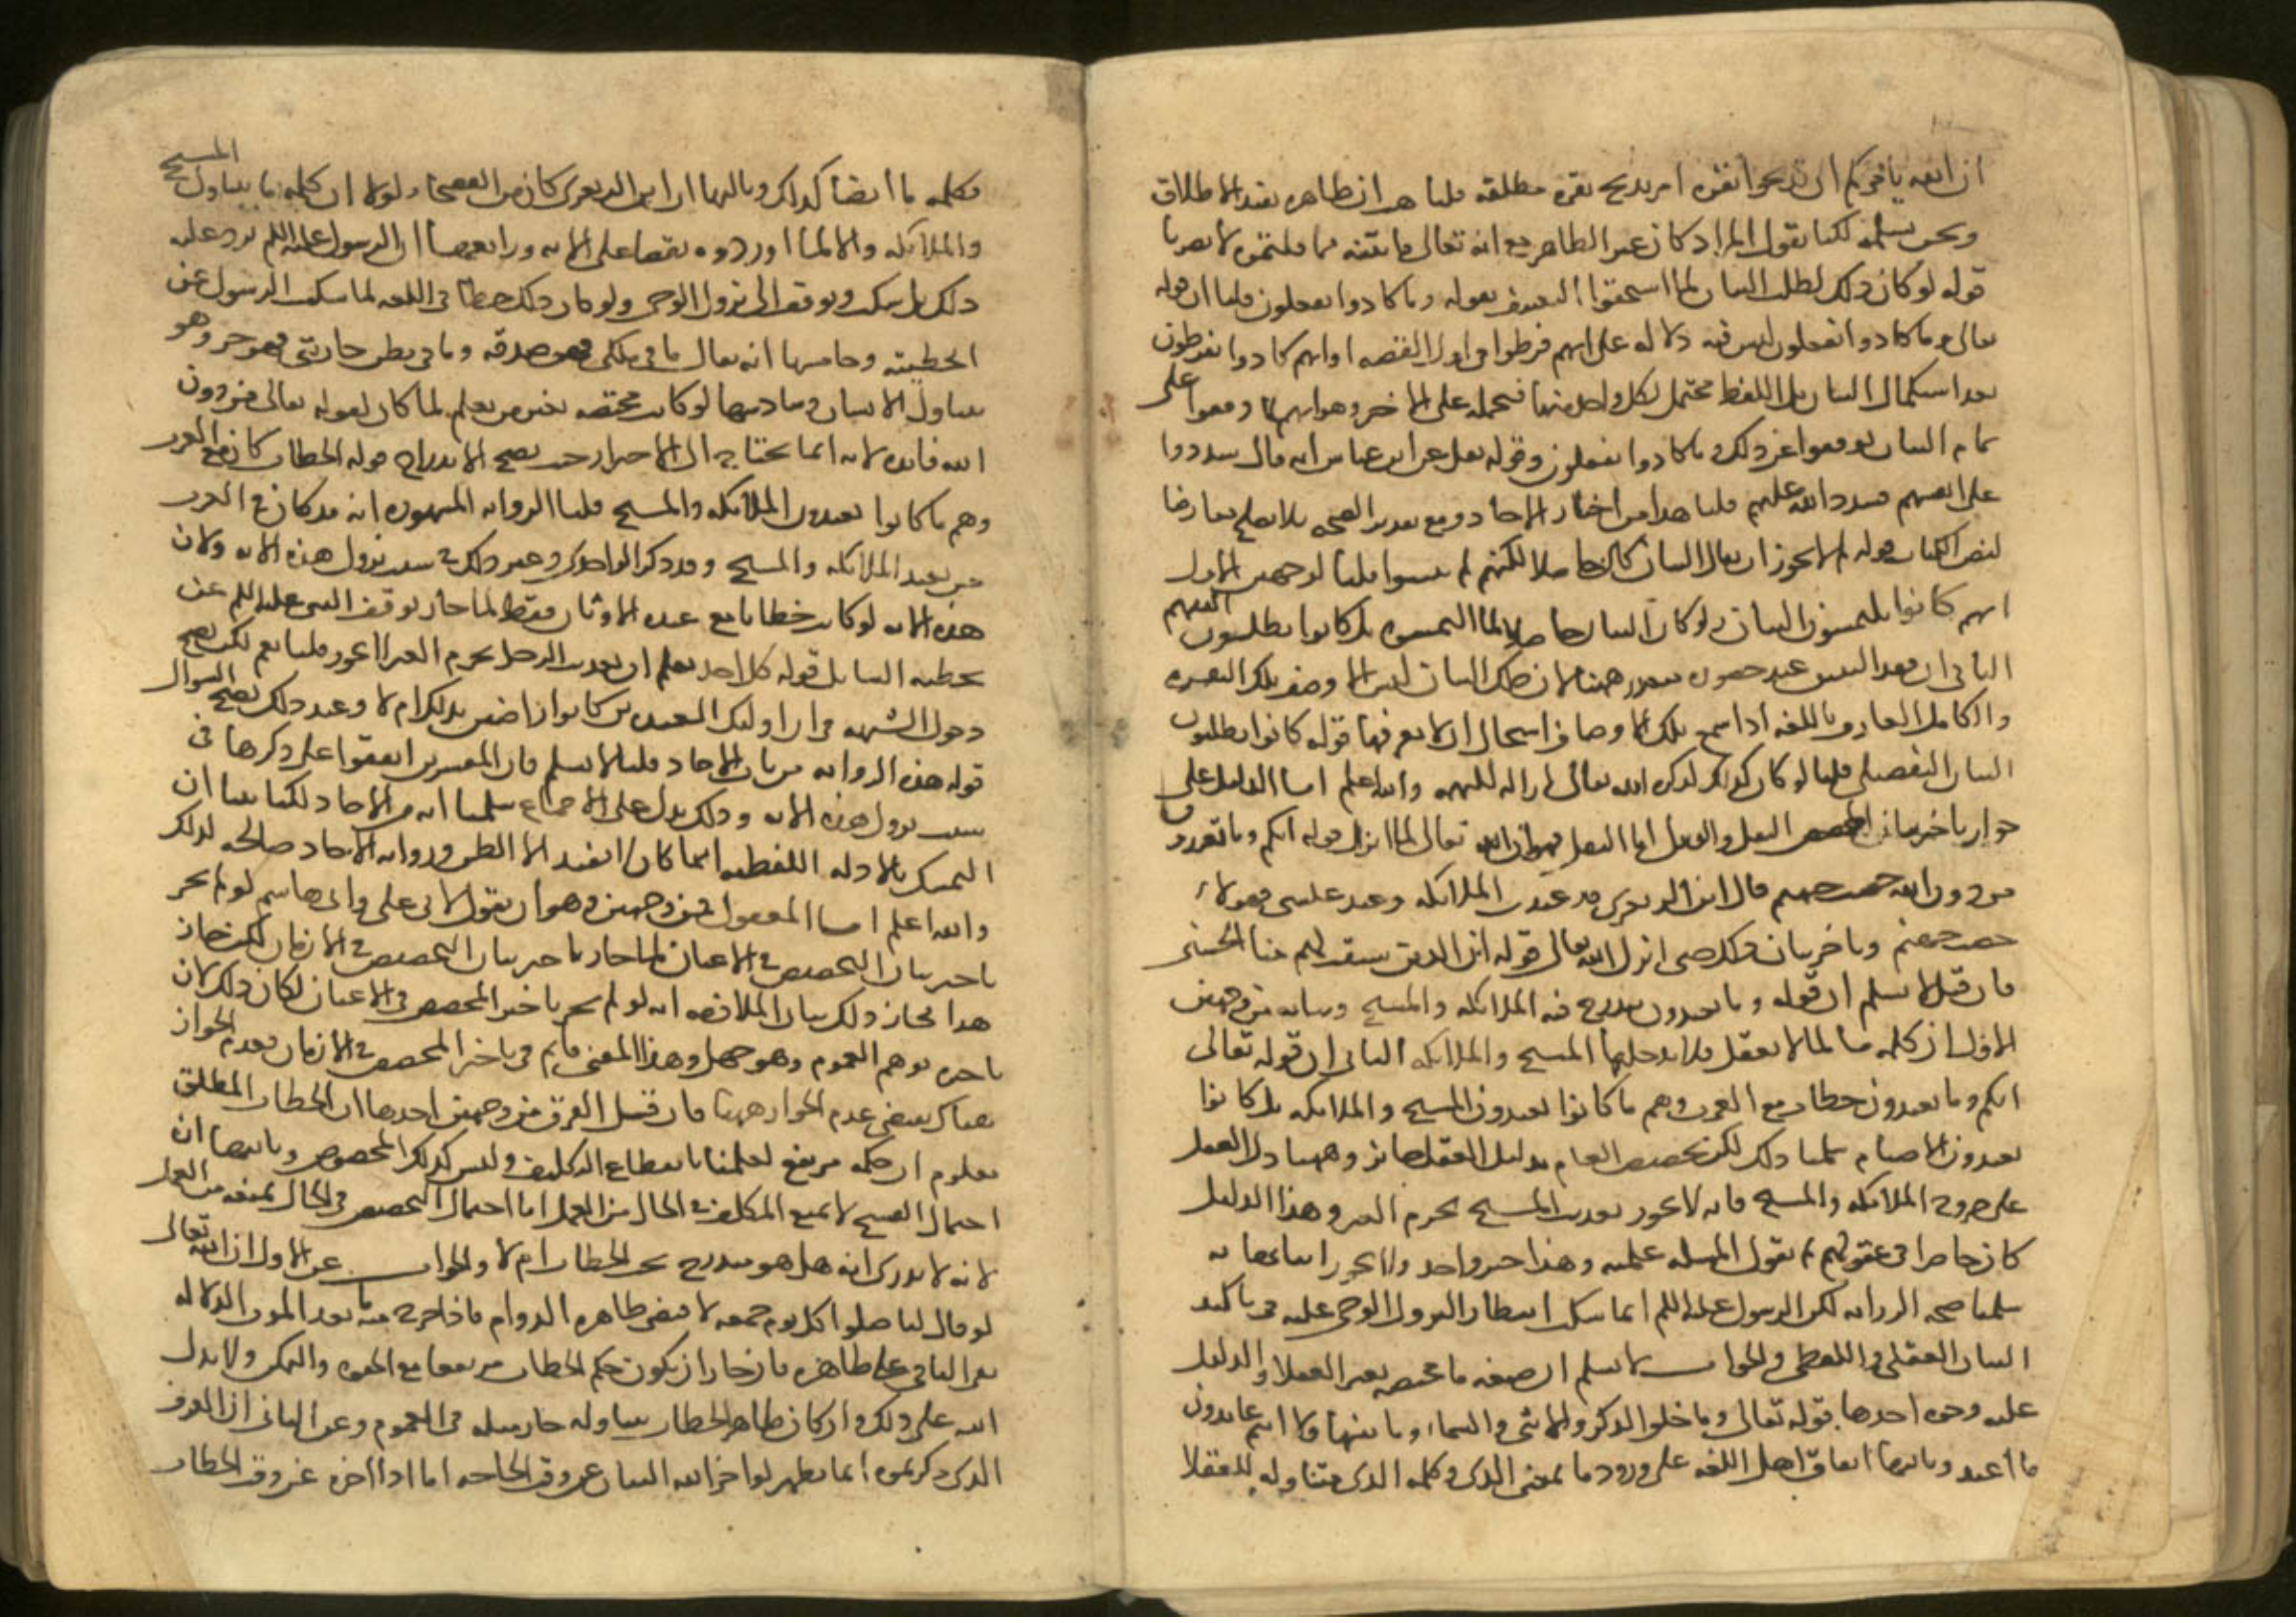 ان الله يامركم ان تذبحوا بقرة امر بذبح بقرة مطلقة قلنا هب ان ظاهره يفيد الاطلاق
ونحن نسلمه لكنا نقول المراد كان غير الظاهر مع انه تعالى ما بينه
قوله لو كان ذلك لطلب البيان لما استحقوا التعنيف بقوله وما كادوا يفعلون قلنا ان قوله
تعالى وما كادوا يفعلون ليس فيه دلالة على انهم فرطوا في اول القصة او انهم كادوا يفرطون
بعد استكمال البيان بل اللفظ محتمل لكل واحد منهما فنحمله على الاخير وهو انهم لما وقفوا على
تمام البيان توقفوا عند ذلك وما كادوا يفعلون وقوله نقل عن ابن عباس انه قال شددوا
على انفسهم فشدد الله عليهم قلنا هذا من اخبار الاحاد ومع تقدير الصحة فلا يصلح معارضا
لنص الكتاب قوله لم لا يجوز ان يقال البيان كان حاصلا لكنهم لم يتبينوا قلنا لوجهين الاول
انهم كانوا يلتمسون البيان ولو كان البيان حاصلا لما التمسوه بل كانوا يطلبون التفهيم
الثاني ان فقد التبين عند حضوره متعذر ههنا لان ذلك البيان ليس الا وصف تلك البقرة
والكامل العارف باللغة اذا سمع تلك الاوصاف استحال ان لا يعرفها قوله كانوا يطلبون
البيان التفصيلي قلنا لو كان كذلك لذكره الله تعالى ازالة للتهمة والله اعلم اما الدليل على
جواز تاخير بيان التخصيص النقل والعقل اما النقل فهو ان الله تعالى لما انزل قوله انكم وما تعبدون
من دون الله حصب جهنم قال ابن الزبعرى قد عبدت الملائكة وعبد عيسى فهؤلاء
حصب جهنم وتاخر بيان ذلك حتى انزل الله تعالى قوله ان الذين سبقت لهم منا الحسنى
فان قيل لا نسلم ان قوله وما تعبدون يندرج فيه الملائكة والمسيح وبيانه من وجهين
الاول ان كلمة ما لما لا يعقل فلا يدخلها المسيح والملائكة الثاني ان قوله تعالى
انكم وما تعبدون خطاب مع العرب وهم ما كانوا يعبدون المسيح والملائكة بل كانوا
يعبدون الاصنام سلمنا ذلك لكن تخصيص العام بدليل العقل جائز وههنا دل العقل
على خروج الملائكة والمسيح فانه لا يجوز تعذيب المسيح بجرم الغير وهذا الدليل
كان حاضرا في عقولهم ثم نقول المسئلة علمية وهذا خبر واحد ولا يجوز اثباتها به
سلمنا صحة الرواية لكن الرسول عليه السلم انما سكت انتظارا لنزول الوحي عليه في تاكيد
البيان العقلي واللفظي والجواب لا نسلم ان صيغة ما مختصة بغير العقلا والدليل
عليه وجوه احدها قوله تعالى وما خلق الذكر والانثى والسماء وما بناها ولا انتم عابدون
ما اعبد وثانيها اتفاق اهل اللغة على ورود ما بمعنى الذي وكلمة الذي متناولة للعقلا
فكلمة ما ايضا كذلك وثالثها ان ابن الزبعرى كان من الفصحاء ولولا ان كلمة ما يتناول المسيح
والملائكة والا لما اورده نقضا على الاية ورابعها ان الرسول عليه السلم لم يرد عليه
ذلك بل سكت وتوقف الى نزول الوحي ولو كان ذلك خطأ في اللغة لما سكت الرسول عن
تخطيته وخامسها انه يقال ما في ملكي فهو صدقة وما في بطن جاريتي فهو حر وهو
يتناول الانسان وسادسها لو كانت مختصة بغير من يعلم لما كان لقوله تعالى من دون
الله فائدة لانه انما يحتاج الى الاحتراز حيث يصح الاندراج قوله الخطاب كان مع العرب
وهم ما كانوا يعبدون الملائكة والمسيح قلنا الرواية المشهورة انه قد كان في العرب
من يعبد الملائكة والمسيح وقد ذكر الواحدي وغير ذلك في سبب نزول هذه الاية ولان
هذه الاية لو كانت خطابا مع عبدة الاوثان فقط لما جاز توقف النبي عليه السلم عن
تخطية السائل قوله كل احد يعلم ان تعذيب الرجل بجرم الغير لا يجوز قلنا نعم لكن يصح
دخول الشبهة في ان اولئك المعبودين كانوا راضين بذلك ام لا وعند ذلك يصح السوال
قوله هذه الرواية من باب الاحاد قلنا لا نسلم فان المفسرين اتفقوا على ذكرها في
سبب نزول هذه الاية وذلك يدل على الاجماع سلمنا انه من الاحاد لكنا بينا ان
التمسك بالادلة اللفظية اينما كان لا يفيد الا الظن ورواية الاحاد صالحة لذلك
والله اعلم اما المعقول فمن وجهين وهو ان نقول لابي علي وابي هاشم لو لم يجز
تاخير بيان التخصيص في الاعيان لما جاز تاخير بيان التخصيص في الازمان لكن جاز
هذا فجاز ذلك بيان الملازمة انه لو لم يجز تاخير المخصص في الاعيان لكان ذلك لان
تاخره يوهم العموم وهو جهل وهذا المعنى قائم في تاخير المخصص في الازمان فعدم الجواز
هناك يقتضي عدم الجواز ههنا فان قيل الفرق من وجهين احدها ان الخطاب المطلق
معلوم ان حكمه مرتفع لعلمنا بانقطاع التكليف وليس كذلك المخصوص وثانيها ان
احتمال النسخ لا يمنع المكلف في الحال من العمل اما احتمال التخصيص في الحال يمنعه من العمل
لانه لا يدري انه هل هو مندرج تحت الخطاب ام لا والجواب عن الاول ان الله تعالى
لو قال لنا صلوا كل يوم جمعة لاقتضى ظاهره الدوام فاذا خرج منه ما بعد الموت لدلالة
بقي الباقي على ظاهره فان جاز ان يكون حكم الخطاب مرتفعا مع الحيوة والتمكن ولا يدل
الله على ذلك وان كان ظاهر الخطاب يتناوله جاز مثله في العموم وعن الثاني ان الفرق
الذي ذكرتموه انما يظهر لو اخر الله البيان عن وقت الحاجة اما اذا اخره عن وقت الخطاب